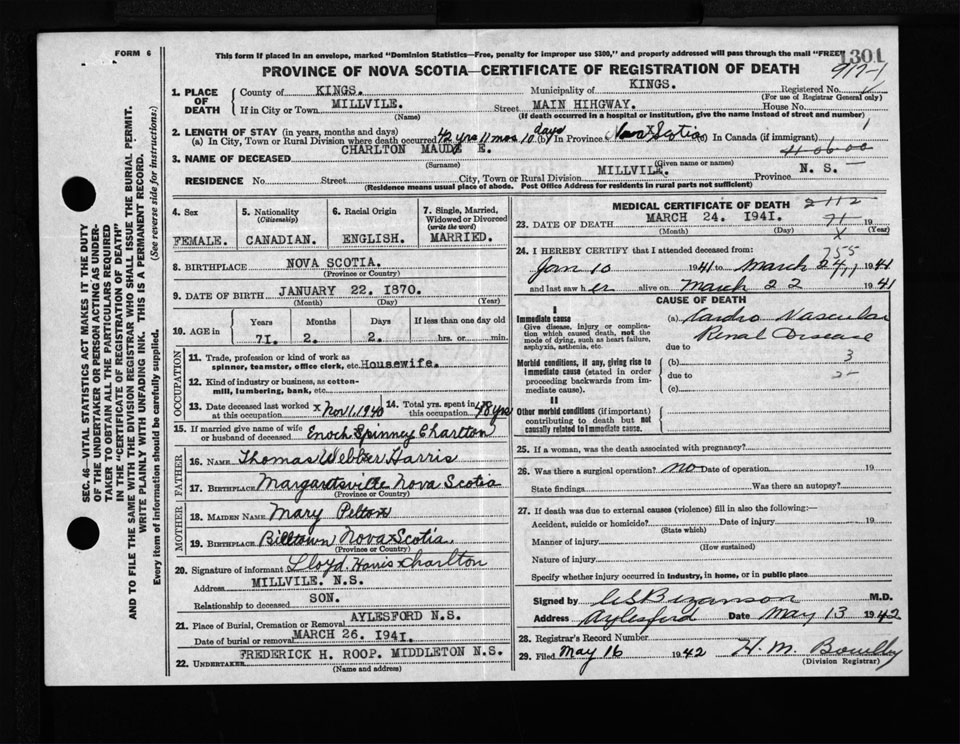 FORM 6
This form if placed in an envelope, marked "Dominion Statistics—Free, penalty for improper use $300," and properly addressed will pass through the mail "FREE"
1301
PROVINCE OF NOVA SCOTIA—CERTIFICATE OF REGISTRATION OF DEATH
1. PLACE OF DEATH
County of KINGS. Municipality of KINGS. Registered No.
(For use of Registrar General only)
If in City or Town MILLVILE. Street MAIN HIHGWAY. House No.
(Name) (If death occurred in a hospital or institution, give the name instead of street and number)
2. LENGTH OF STAY (in years, months and days)
(a) In City, Town or Rural Division where death occurred 42 yrs 11 mos. 10 days (b) In Province Nova Scotia (c) In Canada (if immigrant) 1
3. NAME OF DECEASED CHARLTON MAUDE E. 41 06 00
(Surname) (Given name or names)
RESIDENCE No. Street City, Town or Rural Division MILLVILE. Province N. S.
(Residence means usual place of abode. Post Office Address for residents in rural parts not sufficient)
SEC. 46—VITAL STATISTICS ACT MAKES IT THE DUTY
OF THE UNDERTAKER OR PERSON ACTING AS UNDER-
TAKER TO OBTAIN ALL THE PARTICULARS REQUIRED
IN THE "CERTIFICATE OF REGISTRATION OF DEATH"
AND TO FILE THE SAME WITH THE DIVISION REGISTRAR WHO SHALL ISSUE THE BURIAL PERMIT.
WRITE PLAINLY WITH UNFADING INK. THIS IS A PERMANENT RECORD.
Every item of information should be carefully supplied. (See reverse side for instructions:)
4. Sex FEMALE.
5. Nationality (Citizenship) CANADIAN.
6. Racial Origin ENGLISH.
7. Single, Married, Widowed or Divorced (write the word) MARRIED.
8. BIRTHPLACE NOVA SCOTIA.
(Province or Country)
9. DATE OF BIRTH JANUARY 22. 1870.
(Month) (Day) (Year)
10. AGE in Years Months Days If less than one day old
71. 2. 2. hrs. or min.
OCCUPATION
11. Trade, profession or kind of work as spinner, teamster, office clerk, etc. Housewife.
12. Kind of industry or business, as cotton-mill, lumbering, bank, etc.
13. Date deceased last worked at this occupation Nov 1, 1940
14. Total yrs. spent in this occupation 48 yrs
15. If married give name of wife or husband of deceased Enoch Spinney Charlton
FATHER
16. NAME Thomas Webber Harris
17. BIRTHPLACE Margaretsville Nova Scotia
(Province or Country)
MOTHER
18. MAIDEN NAME Mary Pelton
19. BIRTHPLACE Billtown Nova Scotia
(Province or Country)
20. Signature of informant Lloyd Harris Charlton
Address MILLVILE. N.S.
Relationship to deceased SON.
21. Place of Burial, Cremation or Removal AYLESFORD N.S.
Date of burial or removal MARCH 26. 1941.
22. UNDERTAKER FREDERICK H. ROOP. MIDDLETON N.S.
(Name and address)
MEDICAL CERTIFICATE OF DEATH
23. DATE OF DEATH MARCH 24. 1941. 19
(Month) (Day) (Year)
24. I HEREBY CERTIFY that I attended deceased from:
Jan 10 1941 to March 24 1941
and last saw her alive on March 22 1941
CAUSE OF DEATH
I
Immediate cause
Give disease, injury or complication which caused death, not the mode of dying, such as heart failure, asphyxia, asthenia, etc.
(a) Cardio Vascular
Renal Disease
due to
Morbid conditions, if any, giving rise to immediate cause (stated in order proceeding backwards from immediate cause).
(b) 3
due to 2
(c)
II
Other morbid conditions (if important) contributing to death but not causally related to immediate cause.
25. If a woman, was the death associated with pregnancy?
26. Was there a surgical operation? no Date of operation 19
State findings Was there an autopsy?
27. If death was due to external causes (violence) fill in also the following:—
Accident, suicide or homicide? Date of injury 19
(State which)
Manner of injury
(How sustained)
Nature of injury
Specify whether injury occurred in industry, in home, or in public place
Signed by C S Bezanson M.D.
Address Aylesford Date May 13 1942
28. Registrar's Record Number
29. Filed May 16 1942 H. M. Bowlby
(Division Registrar)